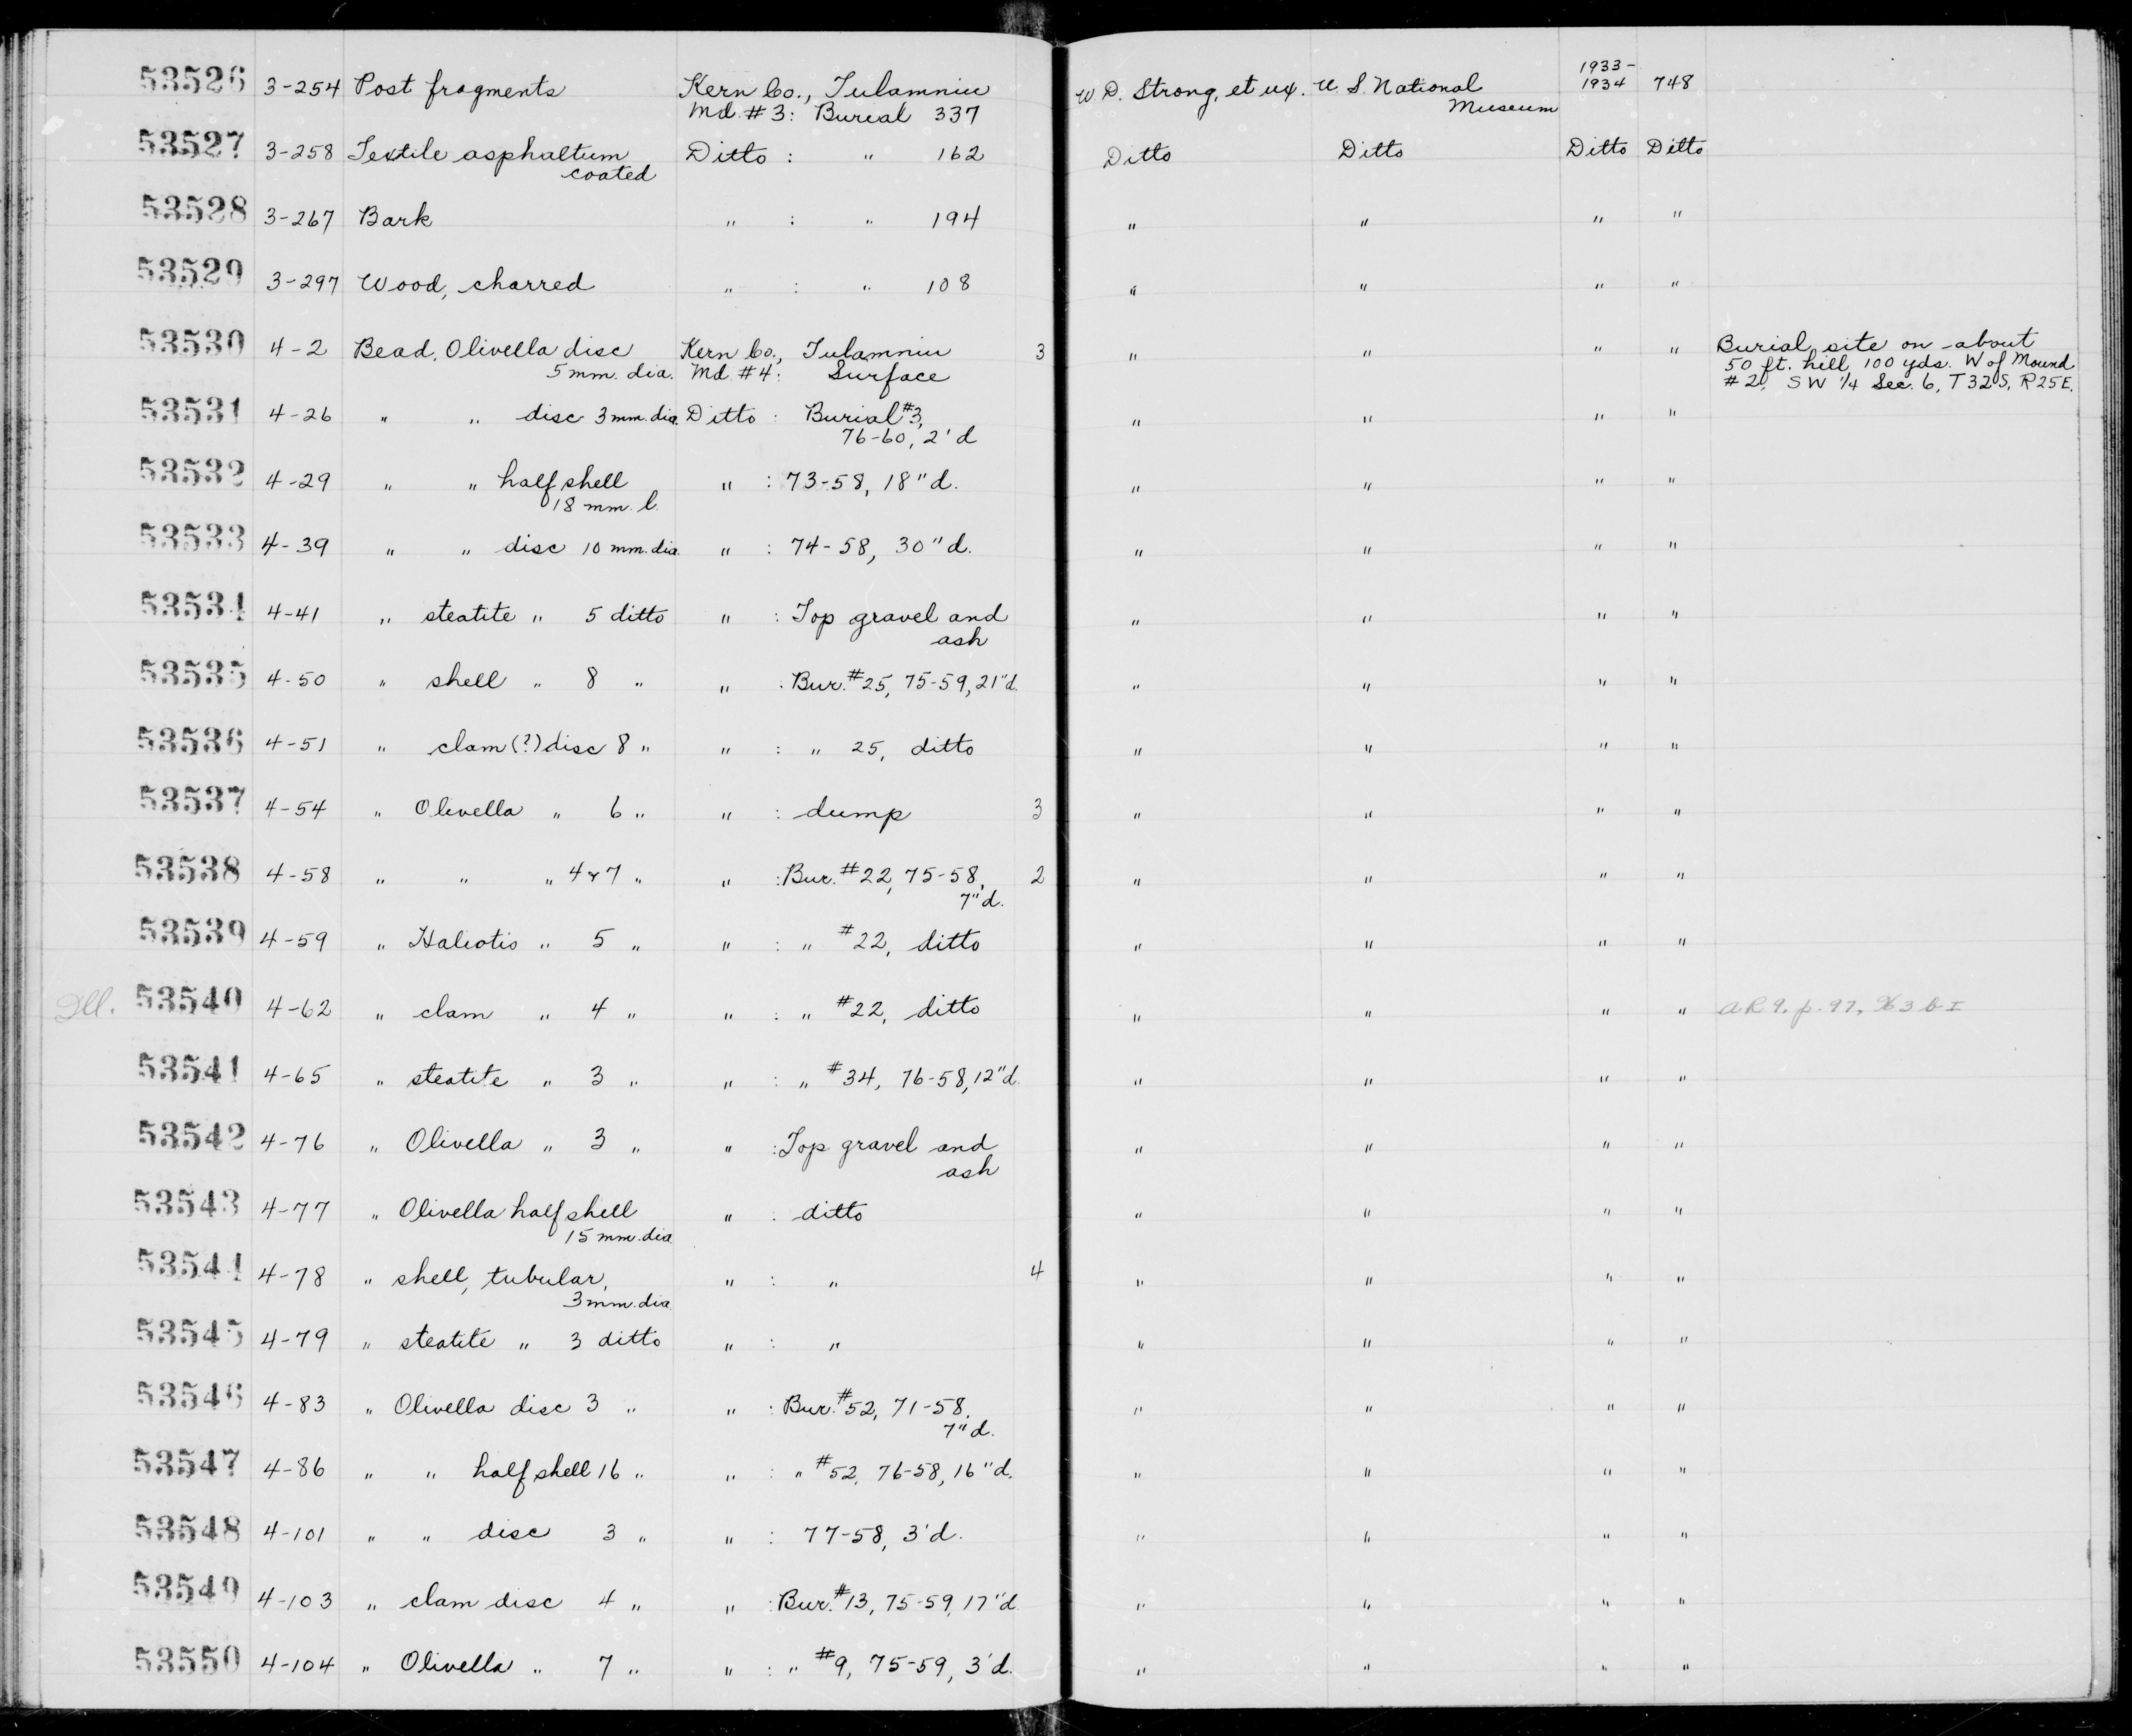 53526 3-254 Post fragments Kern Co., Tulamniu W. D. Strong, et ux. U. S. National 1933-1934 748
Md. #3: Burial 337 Museum
53527 3-258 Textile asphaltum Ditto : " 162 Ditto Ditto Ditto Ditto
coated
53528 3-267 Bark " : " 194 " " " "
53529 3-297 Wood, charred " : " 108 " " " "
53530 4-2 Bead, Olivella disc Kern Co., Tulamniu 3 " " " " Burial site on about
5 mm. dia. Md. #4: Surface 50 ft. hill, 100 yds. W of Mound
#2, SW 1/4 Sec. 6, T32S, R25E.
53531 4-26 " " disc 3 mm. dia. Ditto : Burial #3, " " " "
76-60, 2' d
53532 4-29 " " half shell " : 73-58, 18" d. " " " "
18 mm. l.
53533 4-39 " " disc 10 mm. dia " : 74-58, 30" d. " " " "
53534 4-41 " steatite " 5 ditto " : Top gravel and " " " "
ash
53535 4-50 " shell " 8 " " : Bur. #25, 75-59, 21" d. " " " "
53536 4-51 " clam (?) disc 8 " " : " 25, ditto " " " "
53537 4-54 " Olivella " 6 " " : dump 3 " " " "
53538 4-58 " " " 4 & 7 " " : Bur. #22, 75-58, 2 " " " "
7" d.
53539 4-59 " Haliotis " 5 " " : " #22, ditto " " " "
Ill. 53540 4-62 " clam " 4 " " : " #22, ditto " " " " AR 9. p. 97,
53541 4-65 " steatite " 3 " " : " #34, 76-58, 12" d. " " " "
53542 4-76 " Olivella " 3 " " : Top gravel and " " " "
ash
53543 4-77 " Olivella half shell " : ditto " " " "
15 mm. dia.
53544 4-78 " shell, tubular, " : " 4 " " " "
3 mm. dia.
53545 4-79 " steatite " 3 ditto " : " " " " "
53546 4-83 " Olivella disc 3 " " : Bur. #52, 71-58, " " " "
7" d.
53547 4-86 " " half shell 16 " " : " #52, 76-58, 16" d. " " " "
53548 4-101 " " disc 3 " " : 77-58, 3' d. " " " "
53549 4-103 " clam disc 4 " " : Bur. #13, 75-59, 17" d " " " "
53550 4-104 " Olivella " 7 " " : " #9, 75-59, 3' d. " " " "